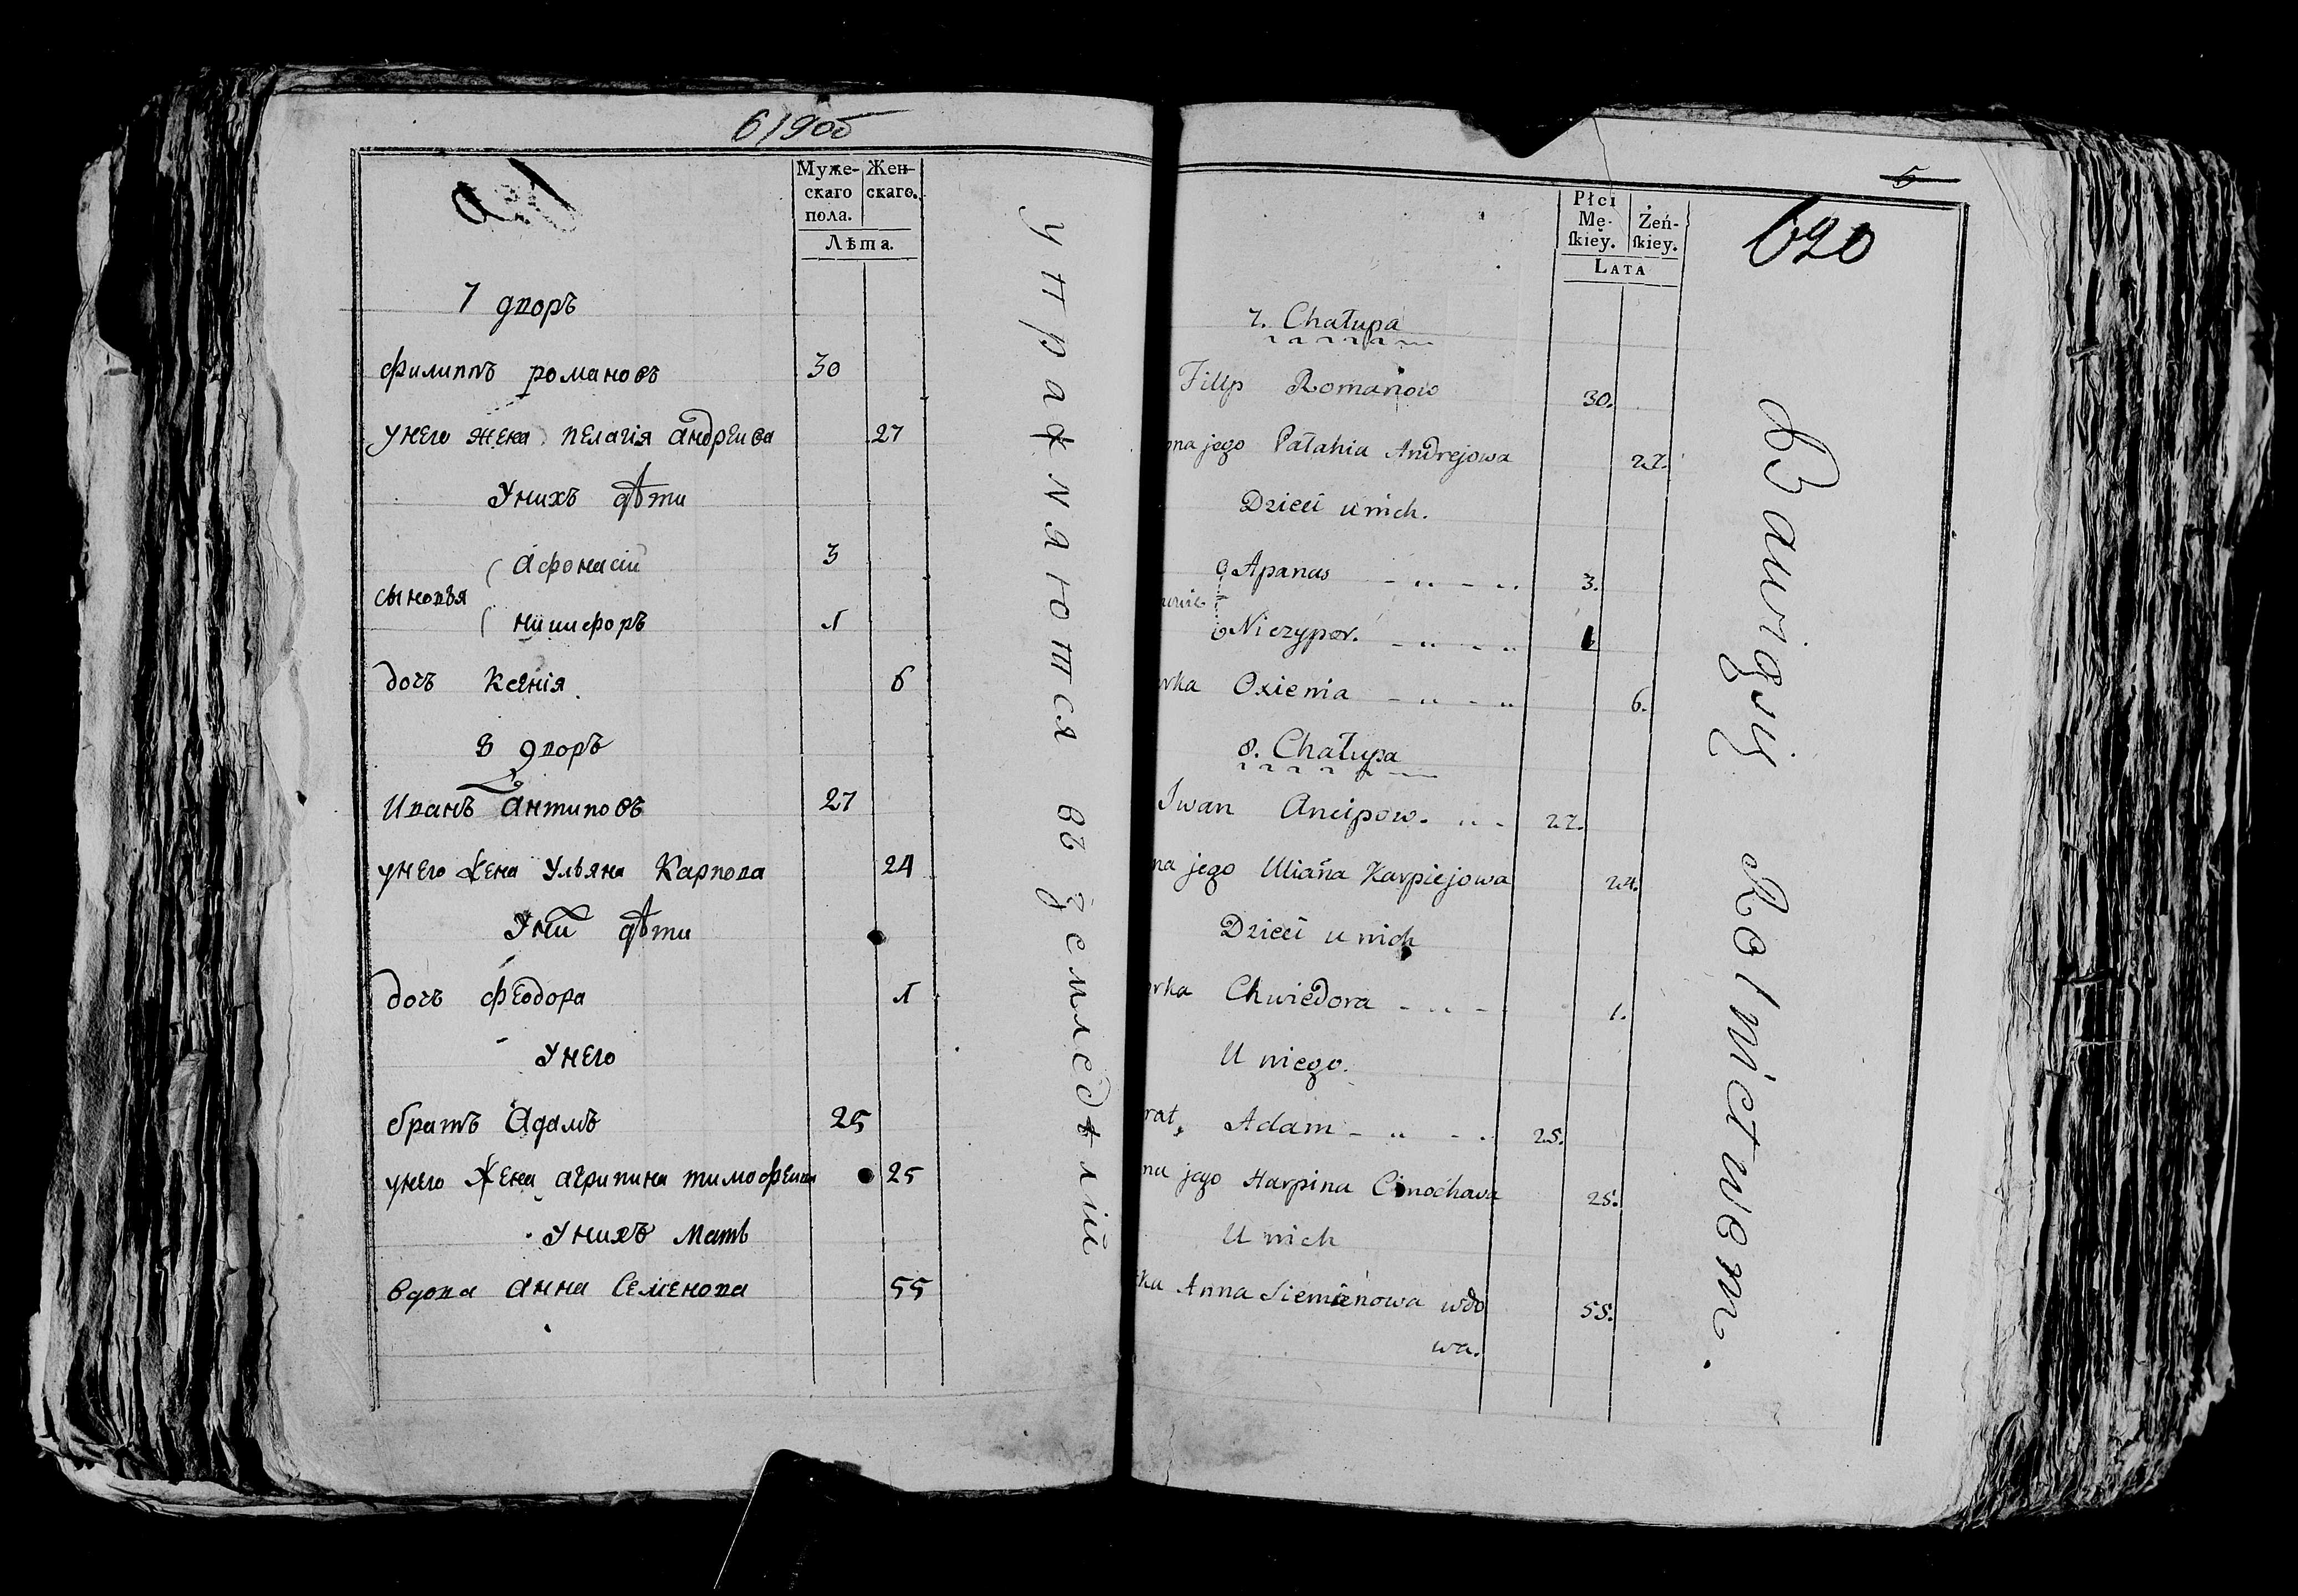 619об
Муже- Жен-
скаго скаго.
пола.
Лѣта.
7 дворъ
Филиппъ Романовъ 30
унего жена Пелагія Андреива 27
Унихъ дѣти
Афонасіи 3
сыновья
Ничифоръ 1
дочъ Ксенія 6
8 дворъ
Иванъ Антиповъ 27
унего жена Ульяна Карпова 24
Уни дѣти
дочъ Феодора 1
Унего
братъ Адамъ 25
унего жена Агрипина Тимофеива 25
Унихъ мать
вдова Анна Семенова 55
упражняются въ земледѣліи
5
620
Płci
Mę- Żeń-
skiey. skiey.
LATA
7. Chałupa
Filip Romanow 30.
ona jego Pałahia Andrejowa 27.
Dzieci u nich.
Apanas 3.
Niczypor. 1
rka Oxienia 6.
8. Chałupa
Iwan Ancipow. 27.
na jego Uliana Karpiejowa 24.
Dzieci u nich
rka Chwiedora 1.
U niego.
rat, Adam 25.
na jego Harpina Cimochawa 25.
U nich
tka Anna Siemienowa wdo 55.
wa.
Bawią się Rolnictwem.